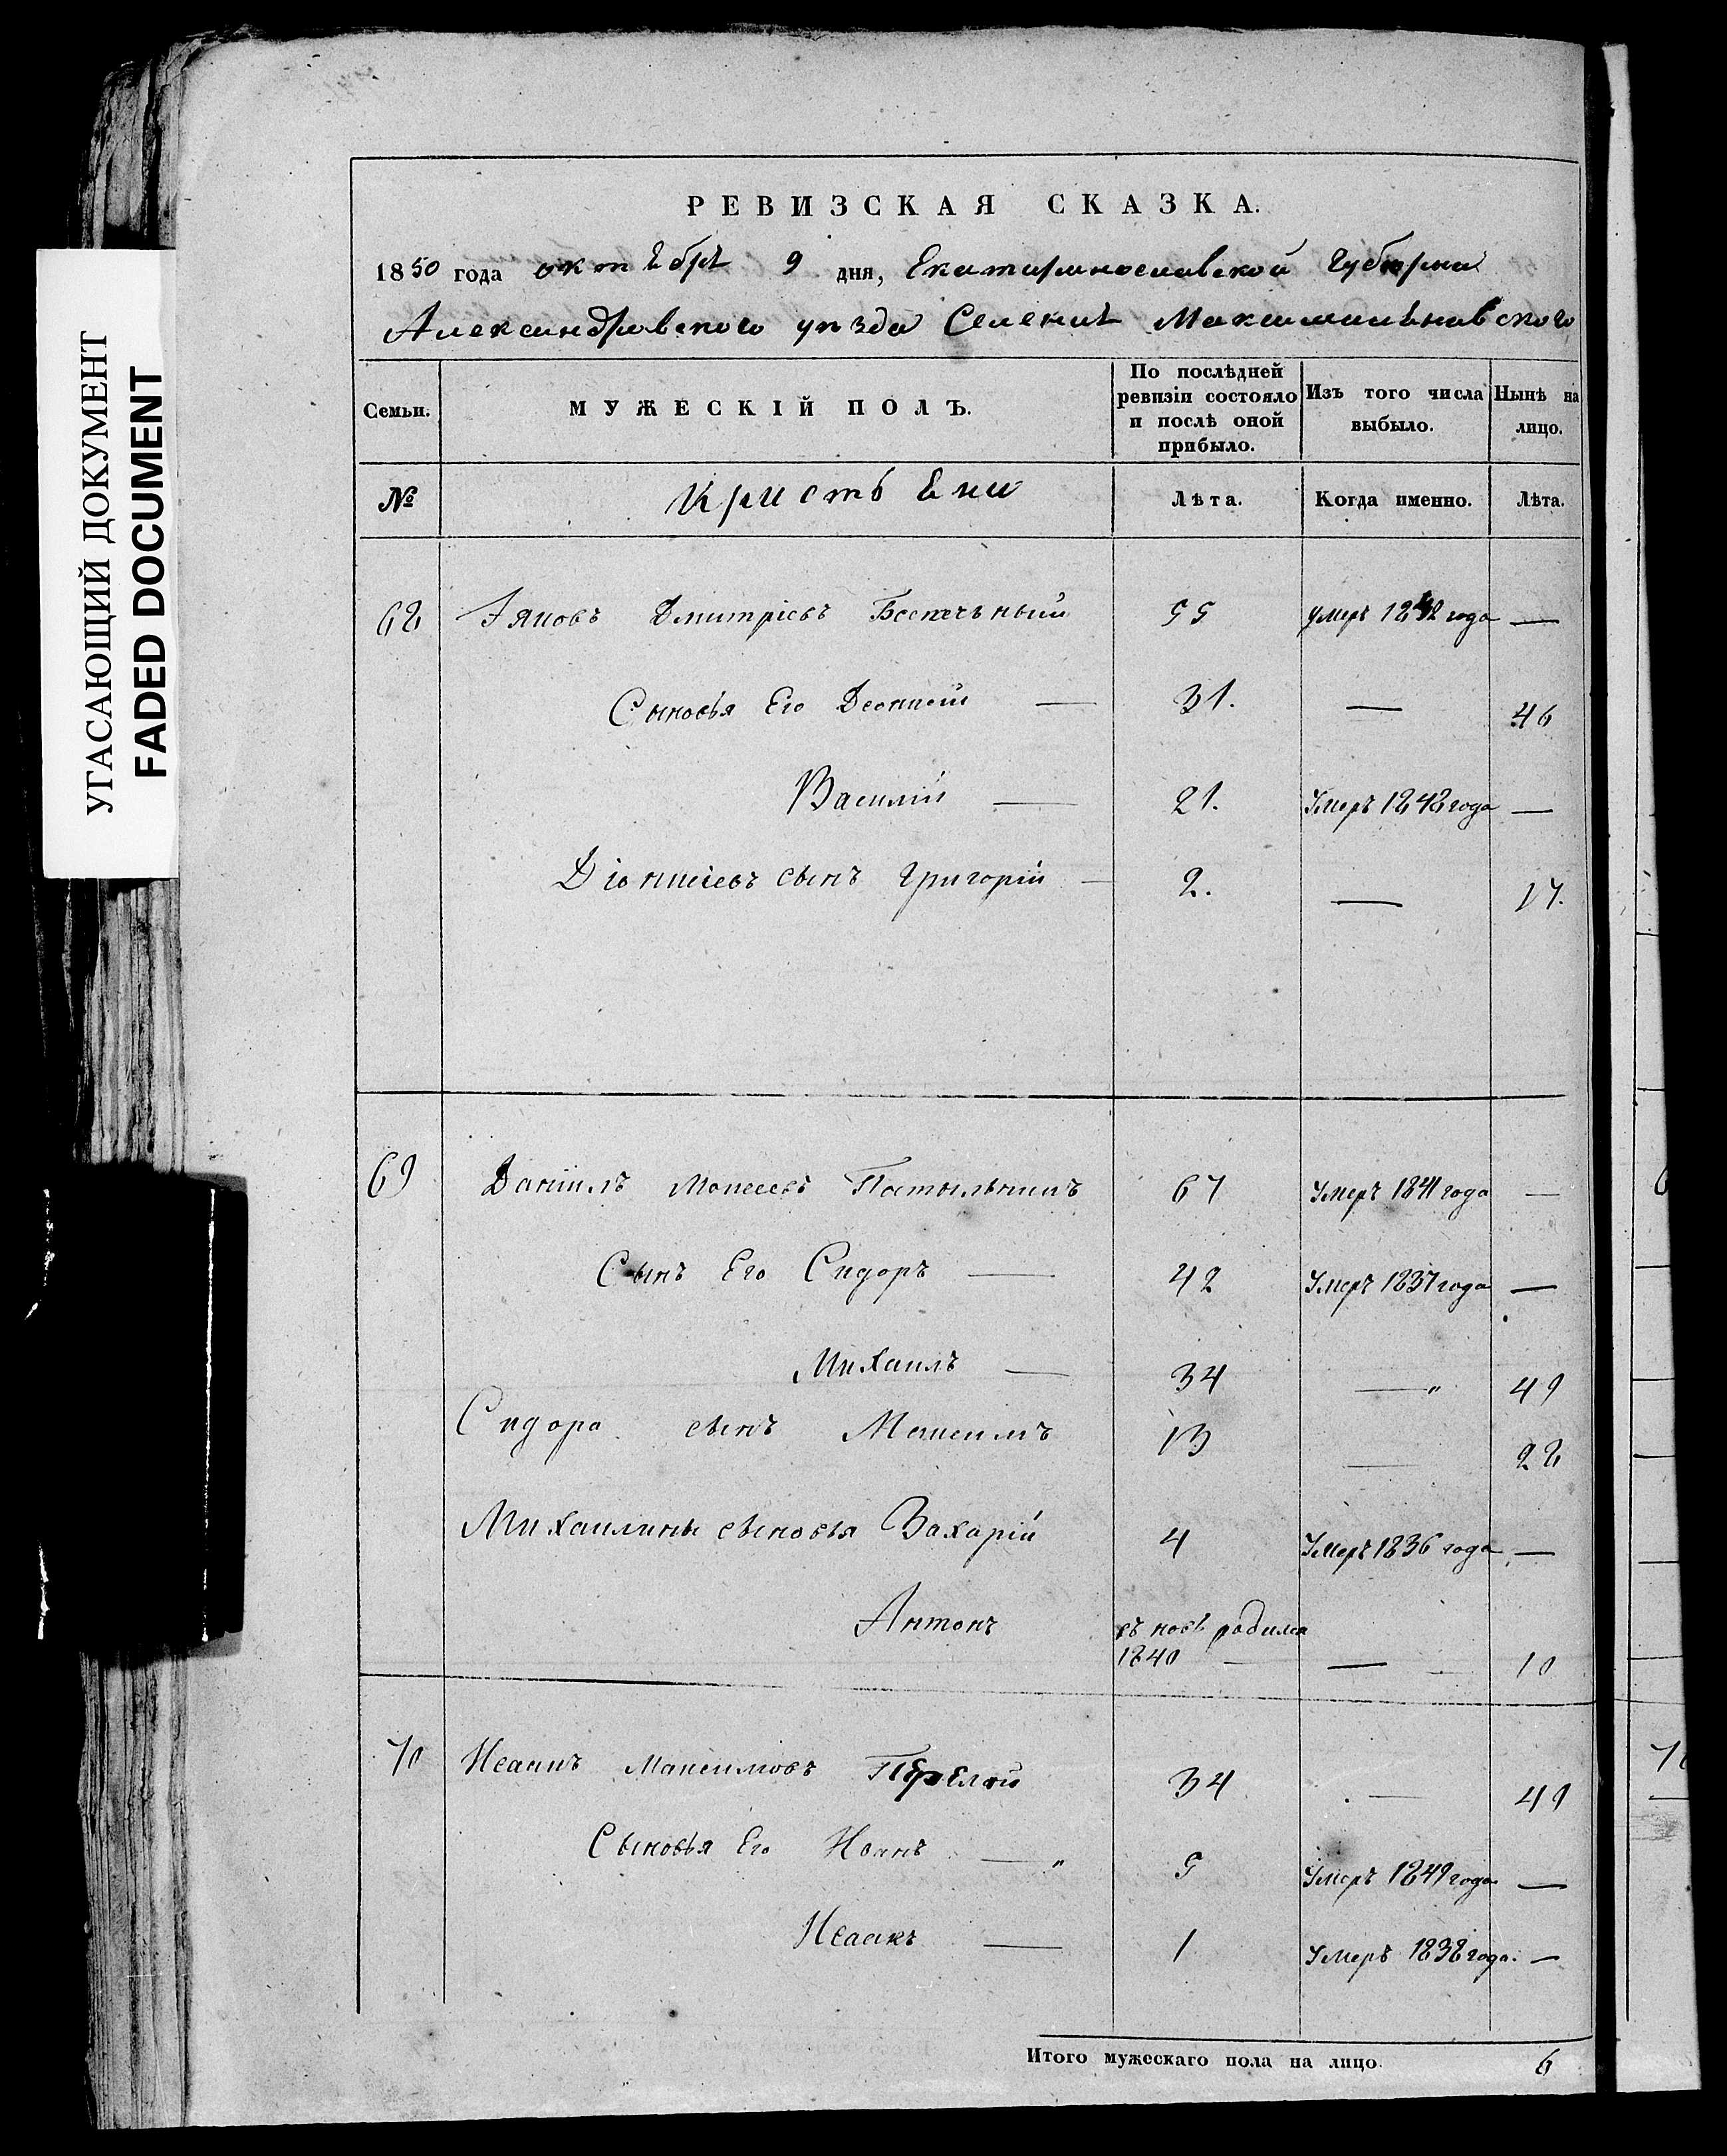 УГАСАЮЩИЙ ДОКУМЕНТ
FADED DOCUMENT
РЕВИЗСКАЯ СКАЗКА.
1850 года октебрѣ 9 дня, Екатеринославской Губерни
Александровского уѣзда Селеніе Максимильяновского
Семьи. МУЖЕСКІЙ ПОЛЪ. По послѣдней ревизіи состояло и послѣ оной прибыло. Изъ того числа выбыло. Нынѣ на лицо.
№ Кристьени Лѣта. Когда именно. Лѣта.
68 Дмитріевъ Беспечьный 55 умеръ 1842 года —
Сыновья Его Деонисій — 31. — 46
Василій — 21. Умеръ 1848 года —
Діонисіевъ сынъ Григорій — 2. — 17.
69 Даніилъ Моисеевъ 67 Умеръ 1841 года —
Сынъ Его Сидоръ — 42 Умеръ 1837 года —
Михаилъ — 34 —„ 49
Сидора сынъ Максимъ 13 — 28
Михаилины сыновья Захарій 4 Умеръ 1836 года —
Антонъ въ новъ родился
1840 — — 10
70 Исаакъ Максимовъ 34 — 49
Сыновья Его Иванъ —„ 5 Умеръ 1849 года —
Исаакъ — 1 Умеръ 1838 года. —
Итого мужескаго пола на лицо. 6